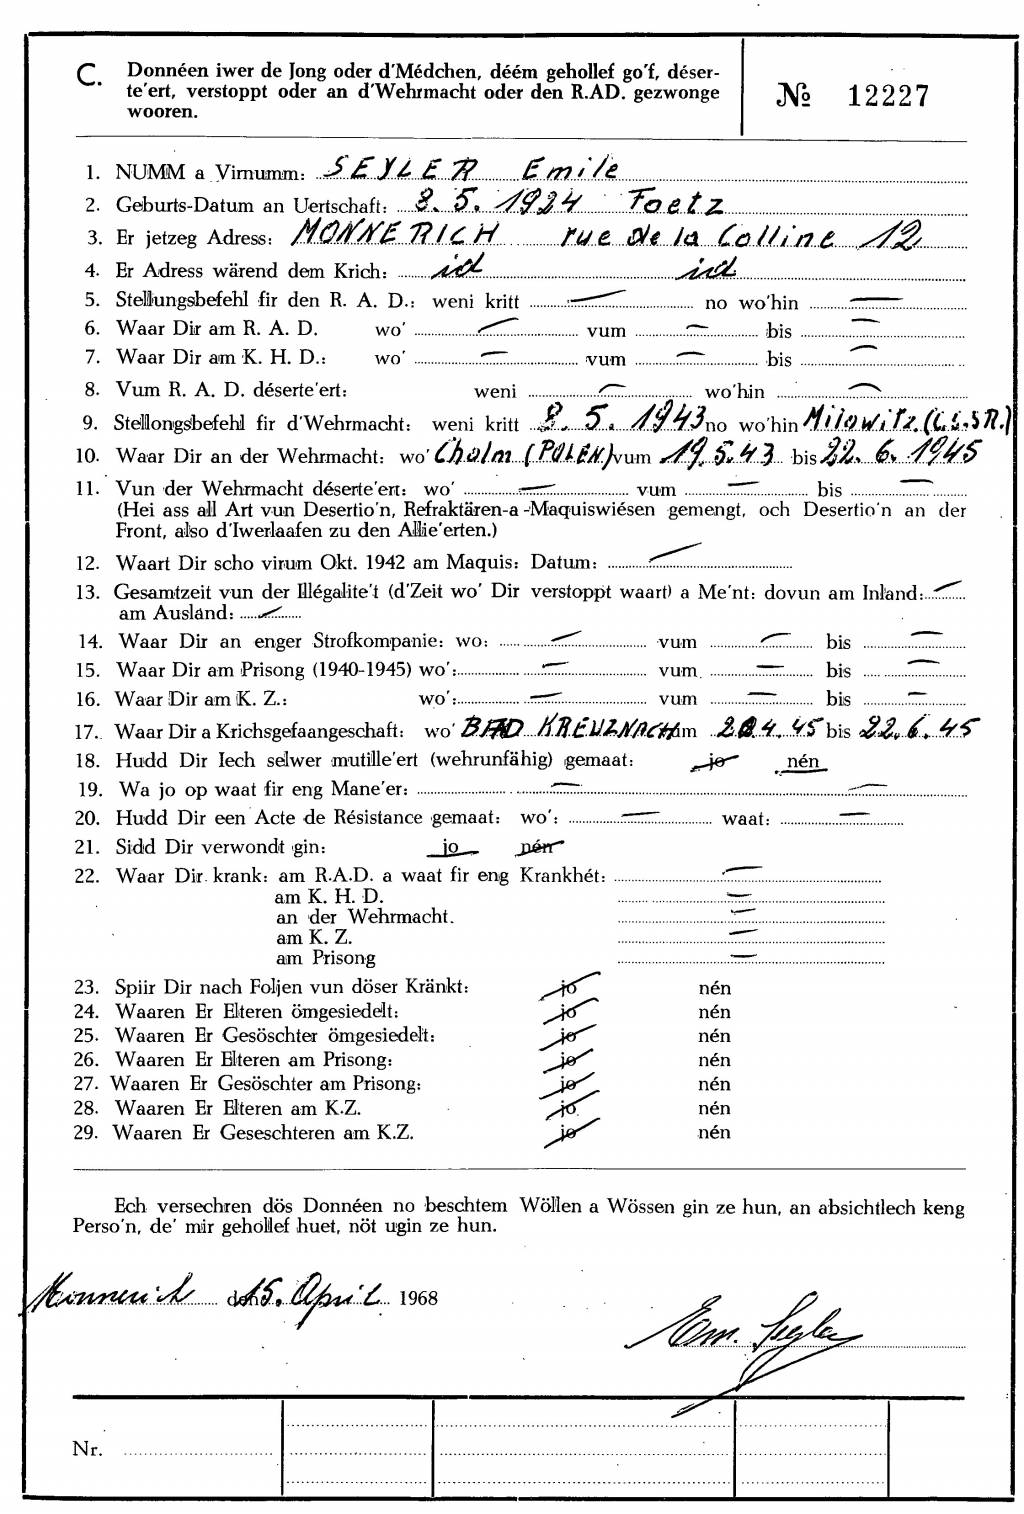 C. Donnéen iwer de Jong oder d'Médchen, déém gehollef go'f, déser-
te'ert, verstoppt oder an d'Wehrmacht oder den R.AD. gezwonge
wooren.
№ 12227
1. NUMM a Virnumm: SEYLER Emile
2. Geburts-Datum an Uertschaft: 8. 5. 1924 Foetz
3. Er jetzeg Adress: MONNERICH rue de la Colline 12
4. Er Adress wärend dem Krich: id id
5. Stellungsbefehl fir den R. A. D.: weni kritt — no wo'hin —
6. Waar Dir am R. A. D. wo' — vum — bis —
7. Waar Dir am K. H. D.: wo' — vum — bis —
8. Vum R. A. D. déserte'ert: weni — wo'hin —
9. Stellongsbefehl fir d'Wehrmacht: weni kritt 8. 5. 1943 no wo'hin Milowitz (C.S.SR.)
10. Waar Dir an der Wehrmacht: wo' Cholm (POLEN) vum 19.5.43 bis 22. 6. 1945
11. Vun der Wehrmacht déserte'ert: wo' — vum — bis —
(Hei ass all Art vun Desertio'n, Refraktären-a-Maquiswiésen gemengt, och Desertio'n an der
Front, also d'Iwerlaafen zu den Allie'erten.)
12. Waart Dir scho virum Okt. 1942 am Maquis: Datum: —
13. Gesamtzeit vun der Illégalite't (d'Zeit wo' Dir verstoppt waart) a Me'nt: dovun am Inland: —
am Ausland: —
14. Waar Dir an enger Strofkompanie: wo: — vum — bis —
15. Waar Dir am Prisong (1940-1945) wo': — vum — bis —
16. Waar Dir am K. Z.: wo': — vum — bis —
17. Waar Dir a Krichsgefaangeschaft: wo' BAD KREUZNACH um 4. 45 bis 22. 6. 45
18. Hudd Dir Iech selwer mutille'ert (wehrunfähig) gemaat: jo nén
19. Wa jo op waat fir eng Mane'er: — —
20. Hudd Dir een Acte de Résistance gemaat: wo': — waat: —
21. Sidd Dir verwondt gin: jo nén
22. Waar Dir krank: am R.A.D. a waat fir eng Krankhét: —
am K. H. D. —
an der Wehrmacht. —
am K. Z. —
am Prisong —
23. Spiir Dir nach Foljen vun döser Kränkt: jo nén
24. Waaren Er Elteren ömgesiedelt: jo nén
25. Waaren Er Gesöschter ömgesiedelt: jo nén
26. Waaren Er Elteren am Prisong: jo nén
27. Waaren Er Gesöschter am Prisong: jo nén
28. Waaren Er Elteren am K.Z. jo nén
29. Waaren Er Geseschteren am K.Z. jo nén
Ech versechren dös Donnéen no beschtem Wöllen a Wössen gin ze hun, an absichtlech keng
Perso'n, de' mir gehollef huet, nöt ugin ze hun.
Monnerich den 15. April 1968
Em. Seyler
Nr.